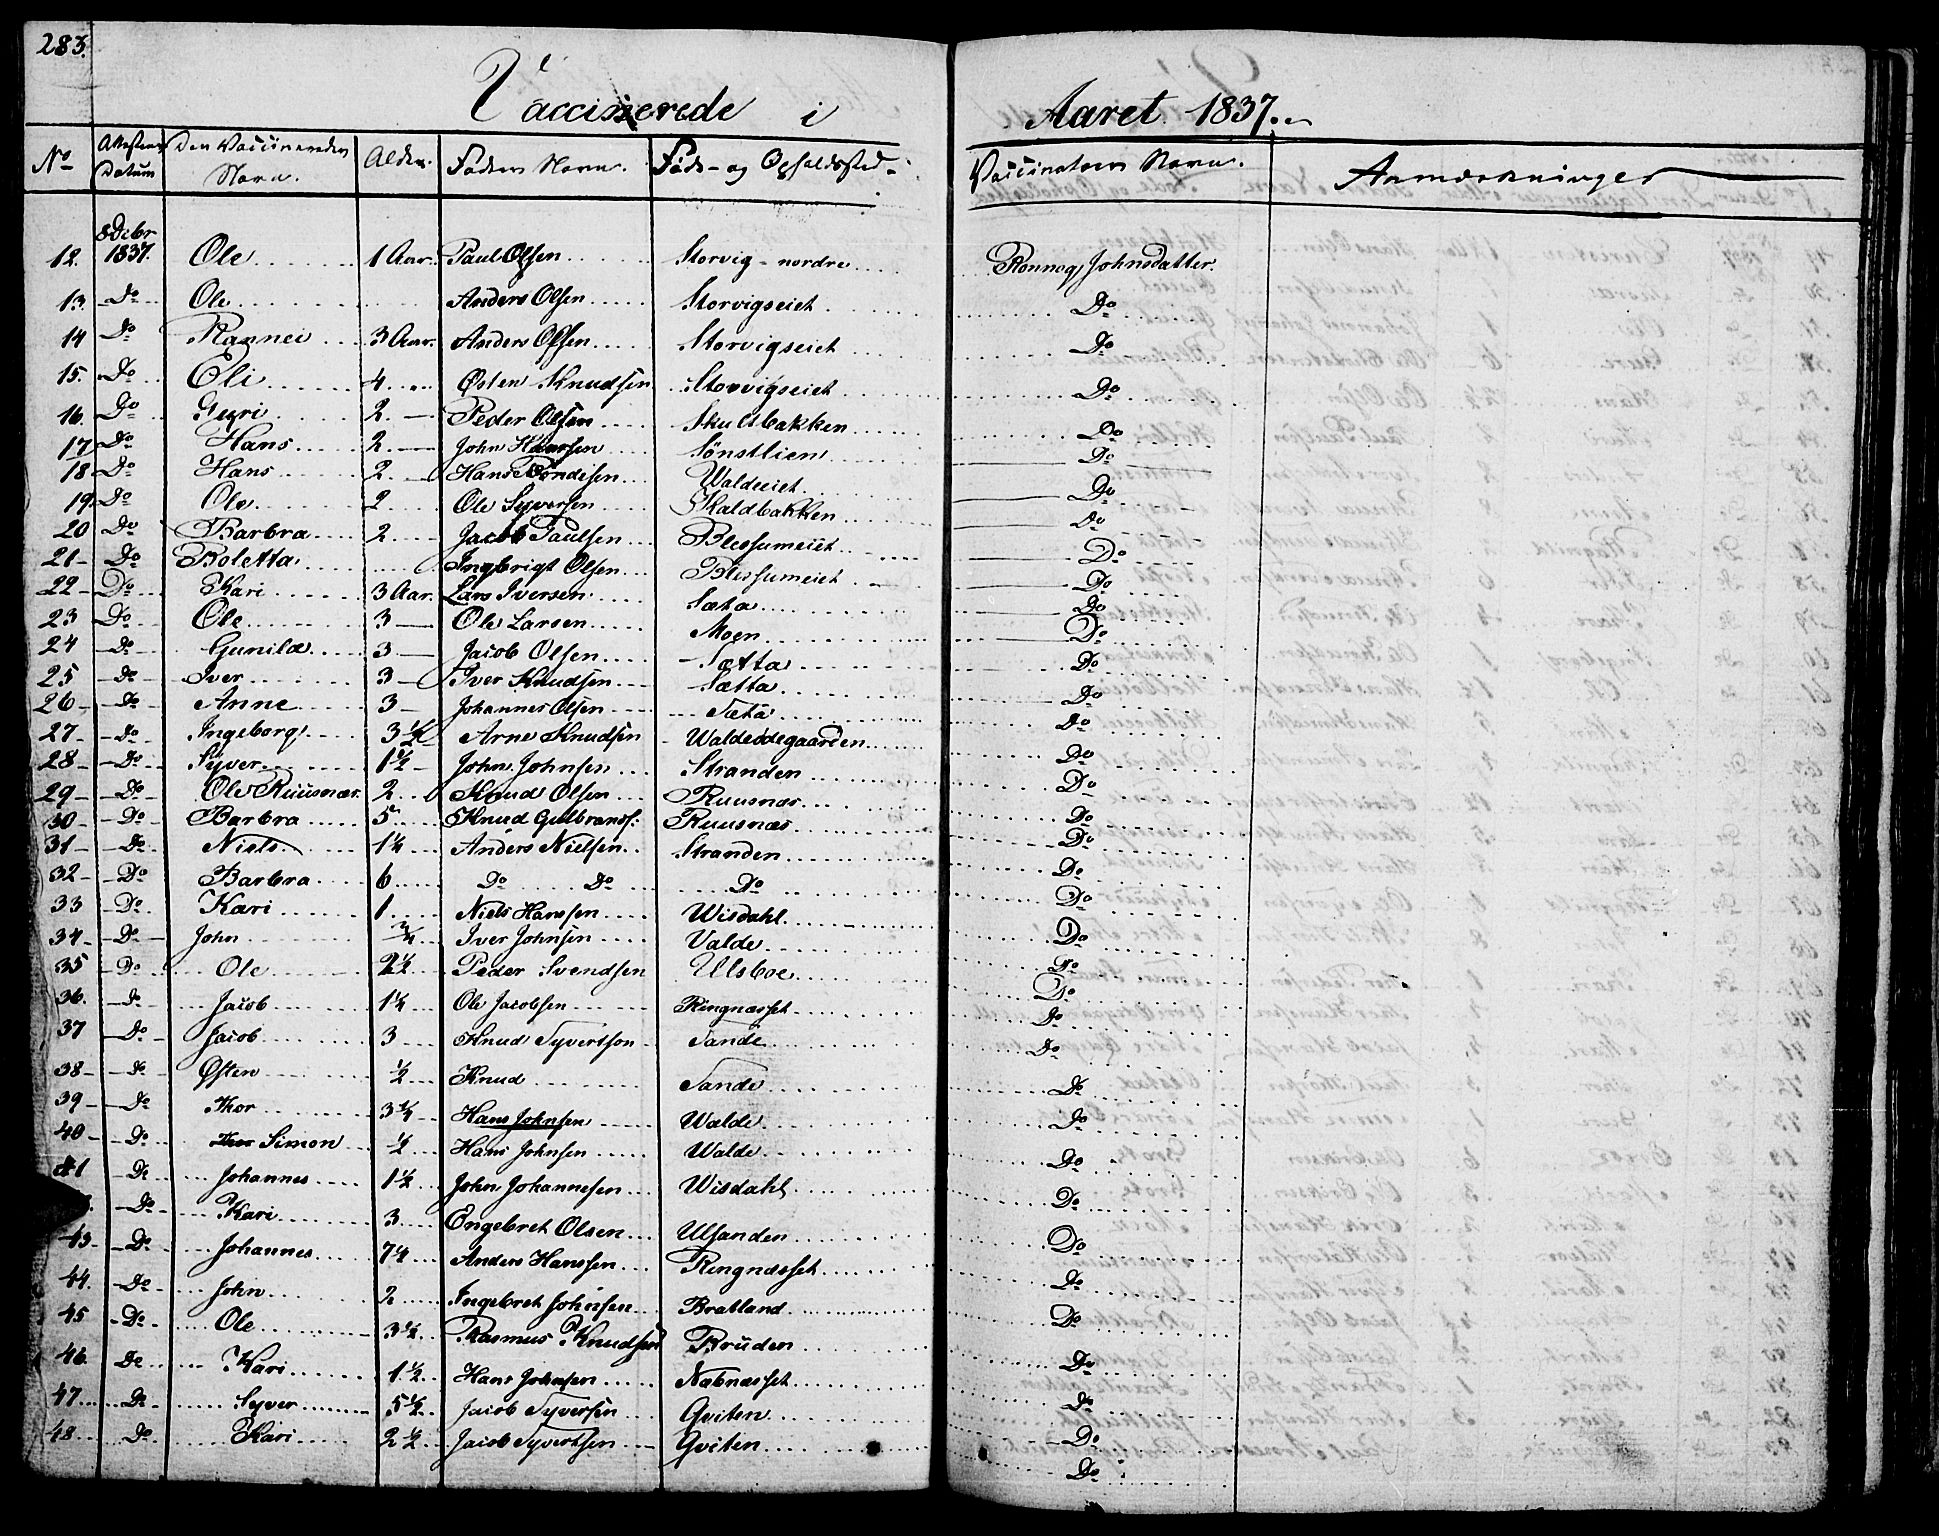 283.
Vaccinerede i Aaret 1837.
No Attestens Datum Den Vaccineredes Navn. Alder. Faders Navn. Føde- og Opholdssted. Vaccinateurs Navn. Anmærkninger
12. 8 Decbr 1837. Ole 1 Aar. Paul Olsen Storvig nordre Ronnog Johnsdatter.
13. Do Ole Anders Olsen Storvigseiet Do
14 Do Rannei 3 Aar. Anders Olsen Storvigseiet Do
15. Do Eli 4 Østen Knudsen Storvigseiet Do
16. Do Guri 2. Peder Olsen Skultbakken Do
17 Do Hans 2. John Sønstlien Do
18 Do Hans 2. Hans Waldeeiet Do
19 Do Ole 2 Ole Syversen Kaldbakken Do
20 Do Barbra 2 Jacob Paulsen Blessumeiet Do
21 Do Boletta Ingbrigt Olsen Blessumeiet Do
22 Do Kari 3 Aar. Lars Iversen Sæta Do
23 Do Ole 3 Ole Larsen Moen Do
24 Do Gunild 3 Jacob Olsen Sætta Do
25 Do Iver 3 Iver Knudsen Sætta Do
26 Do Anne 3 Johannes Olsen Sæta Do
27 Do Ingeborg 3 1/2 Arne Knudsen Waldeødegaarden Do
28 Do Syver 1 1/2 John Johnsen Stranden Do
29 Do Ole Ruusnæs 2 Knud Olsen Ruusnæs Do
30 Do Barbra 5 Knud Gulbrands: Ruusnæs Do
31 Do Niels 1 1/4 Anders Nielsen Stranden Do
32 Do Barbra 6 Do Do Do Do
33 Do Kari 1 Niels Hanssen Wisdahl Do
34 Do John 3/4 Iver Johnsen Valde Do
35 Do Ole 2 1/2 Peder Svendsen Ulsboe Do
36. Do Jacob 1 1/4 Ole Jacobsen Ringnæsset Do
37 Do Jacob 3 Knud Syvertsen Sande Do
38 Do Østen 1/2 Knud Sande Do
39 Do Thor 3 1/4 Hans Johnsen Walde Do
40 Do Simon 1/2 Hans Johnsen Walde Do
41 Do Johannes 1 1/2 John Johannesen Wisdahl Do
Do Kari 3 Engebret Olsen Ulsanden Do
43 Do Johannes 7 1/4 Anders Hanssen Ringnæsset Do
44. Do John 2 Ingebret Johnsen Bratland Do
45 Do Ole 3 1/2 Rasmus Knudsen Bruden Do
46. Do Kari 1 1/2 Hans Johnsen Næbnæsset Do
47 Do Syver 5 1/2 Jacob Syversen Qviten Do
48 Do Kari 2 1/2 Jacob Syvertsen Qviten Do